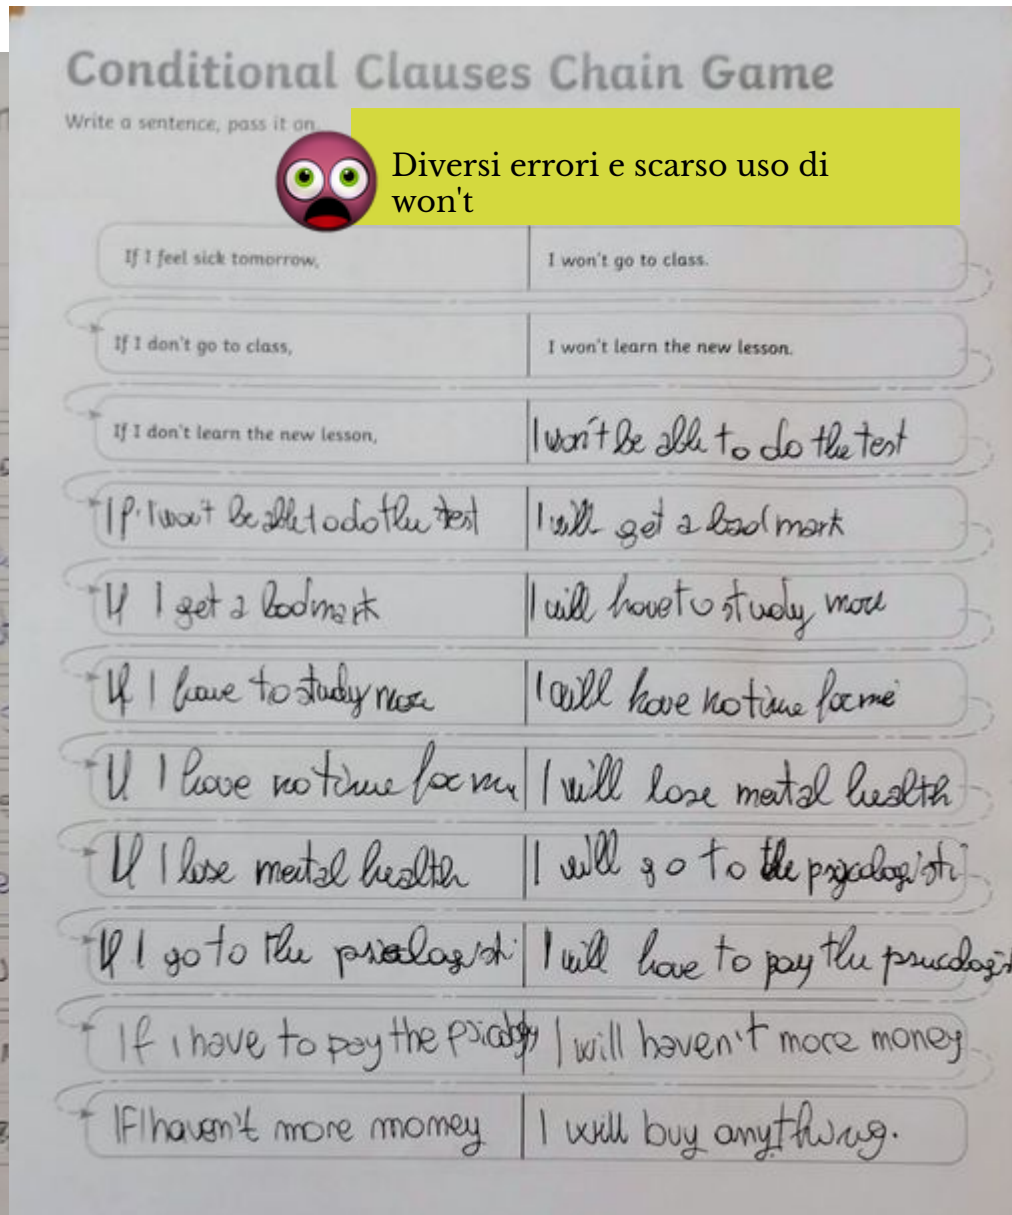 Conditional Clauses Chain Game
Write a sentence, pass it on.
Diversi errori e scarso uso di
won't
If I feel sick tomorrow, I won't go to class.
If I don't go to class, I won't learn the new lesson.
If I don't learn the new lesson, I won't be able to do the test
If I won't be able to do the test I will get a bad mark
If I get a bad mark I will have to study more
If I have to study more I will have no time for me
If I have no time for me I will lose mental health
If I lose mental health I will go to the
If I go to the I will have to pay the
If i have to pay the I will haven't more money
IF I haven't more money I will buy anything.